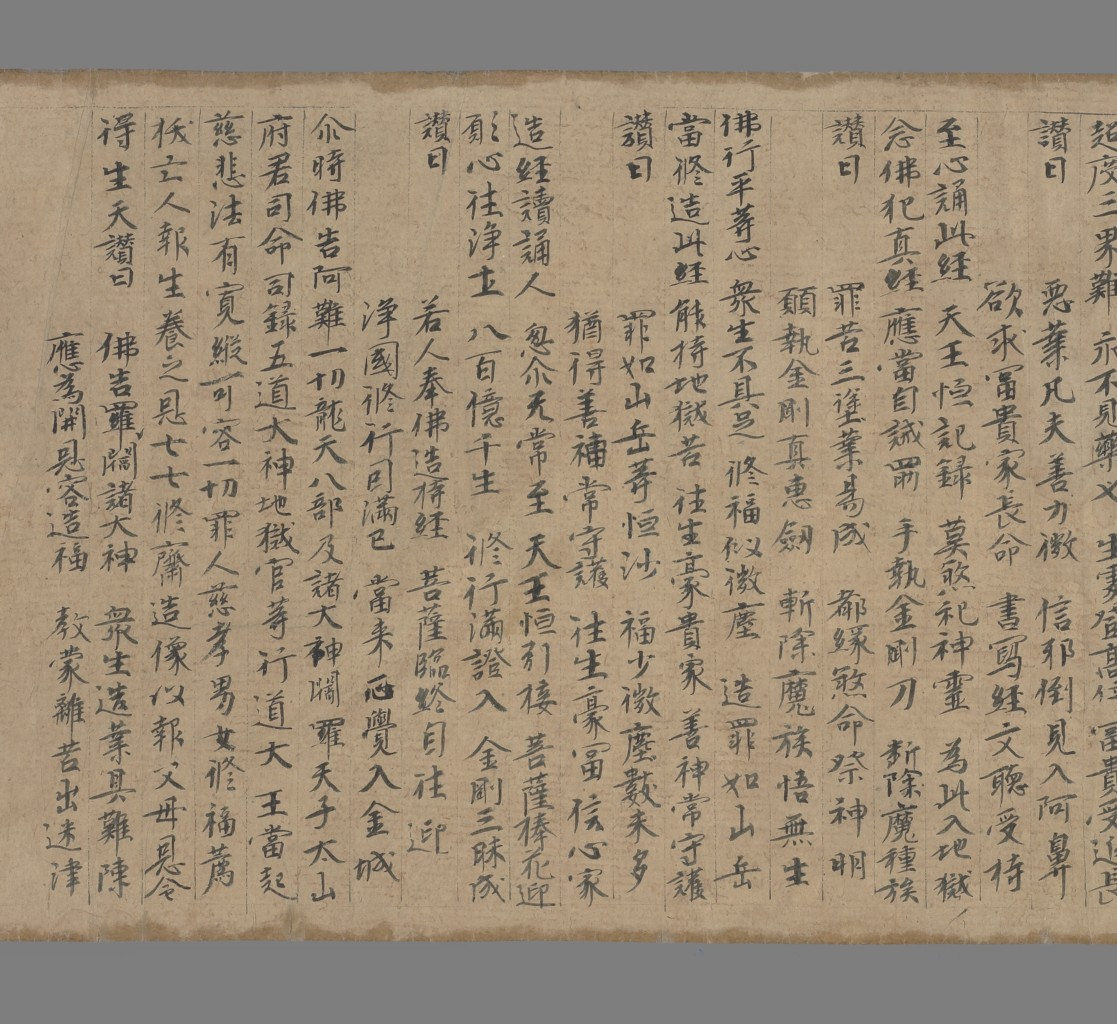 超度三界難 永不見藥叉 生處登高位 富貴受延長
讚曰 惡業凡夫善力微 信邪倒見入阿鼻
欲求冨貴家長命 書寫經文聽受持
至心誦此經 天王恒記録 莫煞祀神靈 為此入地獄
念佛犯真經 應當自誡罰 手執金剛刀 斷除魔種族
讚曰 罪苦三塗業易成 都緣煞命祭神明
願執金剛真惠劔 斬除魔族悟無生
佛行平等心 衆生不具足 修福似微塵 造罪如山岳
當修造此經 能持地獄苦 往生豪貴家 善神常守護
讚曰 罪如山岳等恒沙 福少微塵數未多
猶得善神常守護 往生豪冨信心家
造經讀誦人 忽尒无常至 天王恒引接 菩薩捧花迎
願心往淨土 八百億千生 修行滿證入 金剛三昧成
讚曰 若人奉佛造持經 菩薩臨終自往迎
淨國修行因滿已 當来正覺入金城
尒時佛告阿難一切龍天八部及諸大神閻羅天子太山
府君司命司録五道大神地獄官等行道大王當起
慈悲法有寬縱可容一切罪人慈孝男女修福薦
拔亡人報生養之恩七七修齋造像以報父母恩令
得生天讚曰 佛告羅閻諸大神 衆生造業具難陳
應為開恩容造福 教蒙離苦出迷津